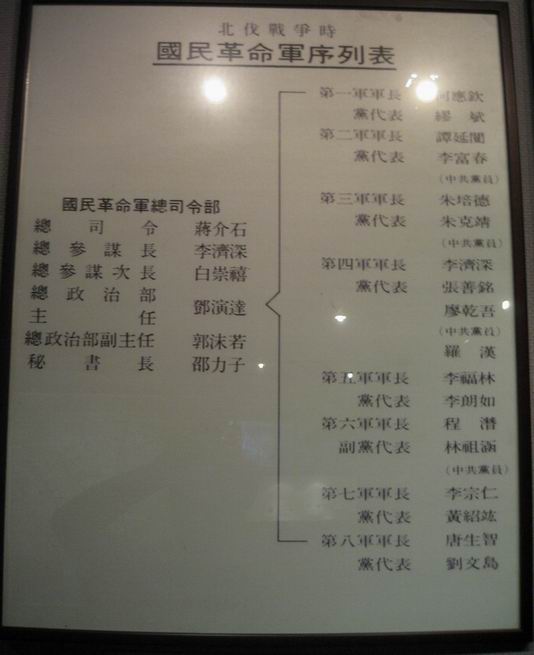 北伐戰爭時
國民革命軍序列表
國民革命軍總司令部
總司令 蔣介石
總參謀長 李濟深
總參謀次長 白崇禧
總政治部
主任 鄧演達
總政治部副主任 郭沫若
秘書長 邵力子
第一軍軍長 何應欽
黨代表 繆斌
第二軍軍長 譚延闓
黨代表 李富春
(中共黨員)
第三軍軍長 朱培德
黨代表 朱克靖
(中共黨員)
第四軍軍長 李濟深
黨代表 張善銘
廖乾吾
(中共黨員)
羅漢
第五軍軍長 李福林
黨代表 李朗如
第六軍軍長 程潛
副黨代表 林祖涵
(中共黨員)
第七軍軍長 李宗仁
黨代表 黃紹竑
第八軍軍長 唐生智
黨代表 劉文島